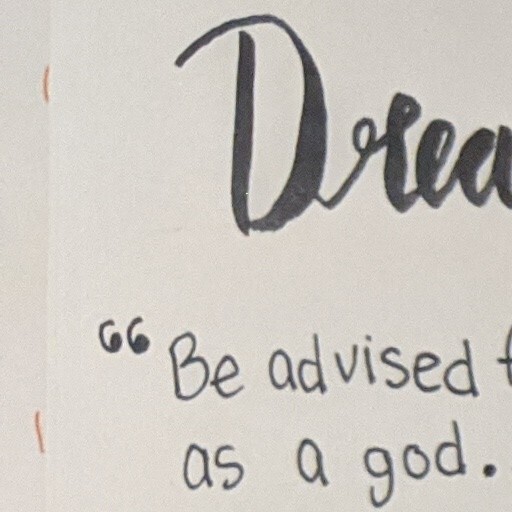 Drea
“Be advised
as a god.